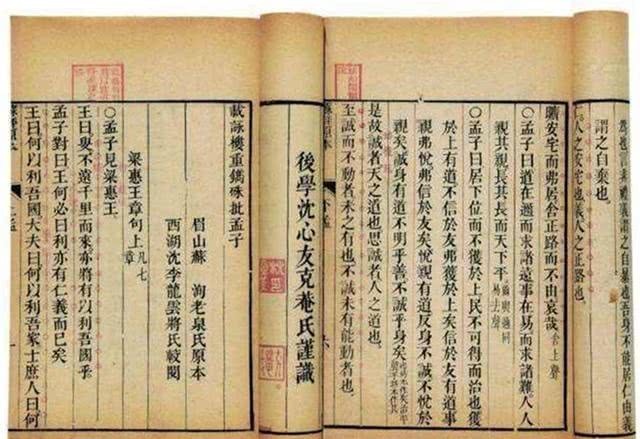 爲也言非禮義謂之自暴也吾身不能居仁由義
謂之自棄也
仁人之安宅也義人之正路也
曠安宅而弗居舍正路而不由哀哉 舍上聲
〇孟子曰道在邇而求諸遠事在易而求諸難人人
親其親長其長而天下平 易去聲
〇孟子曰居下位而不獲於上民不可得而治也獲
於上有道不信於友弗獲於上矣信於友有道事
親弗悅弗信於友矣悅親有道反身不誠不悅於
親矣誠身有道不明乎善不誠乎身矣
是故誠者天之道也思誠者人之道也
至誠而不動者未之有也不誠未有能動者也
下孟
六
後學沈心友克菴氏謹識
載詠樓重鐫硃批孟子
眉山蘇洵老泉氏原本
西湖沈李龍雲將氏較閱
梁惠王章句上 凡七章
〇孟子見梁惠王
王曰叟不遠千里而來亦將有以利吾國乎
孟子對曰王何必曰利亦有仁義而已矣
王曰何以利吾國大夫曰何以利吾家士庶人曰何
上孟
一